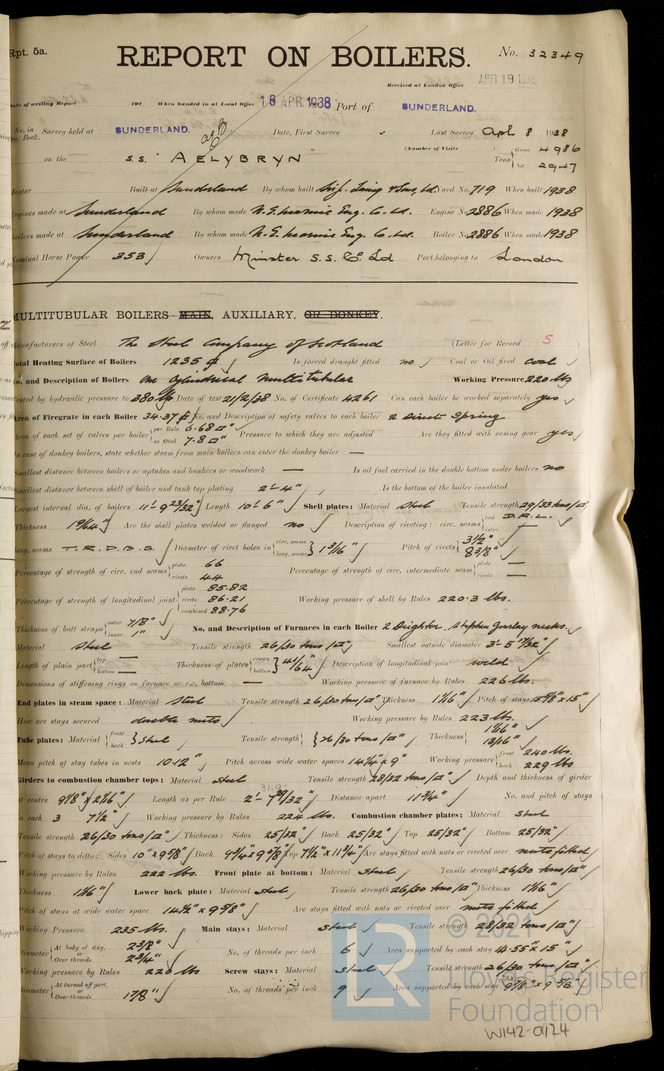 Rpt. 5a.
REPORT ON BOILERS.
No. 32349
Received at London Office
APR 19 1938
Date of writing Report 19 When handed in at Local Office 16 APR 1938 Port of SUNDERLAND.
No. in Survey held at SUNDERLAND. Date, First Survey Last Survey Apl 8 1938
Reg. Book.
(Number of Visits
on the S.S. "AELYBRYN" Tons Gross 4986
Net 2947
Master Built at Sunderland By whom built Sir J. Laing & Sons, Ld. Yard No. 719 When built 1938
Engines made at Sunderland By whom made N.E. Marine Eng. Co. Ld. Engine No. 2886 When made 1938
Boilers made at Sunderland By whom made N.E. Marine Eng. Co. Ld. Boiler No. 2886 When made 1938
Nominal Horse Power 353 Owners Minster S.S. Co. Ld Port belonging to London
MULTITUBULAR BOILERS MAIN, AUXILIARY, OR DONKEY.
Manufacturers of Steel The Steel Company of Scotland (Letter for Record S
Total Heating Surface of Boilers 1235 Is forced draught fitted no Coal or Oil fired coal
No. and Description of Boilers One Cylindrical Multitubular Working Pressure 220 lbs
Tested by hydraulic pressure to 380 lbs Date of test 21/2/38 No. of Certificate 4261 Can each boiler be worked separately yes
Area of Firegrate in each Boiler 34.37 No. and Description of safety valves to each boiler 2 Direct Spring
Area of each set of valves per boiler per Rule 6.68 □" as fitted 7.80 □" Pressure to which they are adjusted Are they fitted with easing gear yes
In case of donkey boilers, state whether steam from main boilers can enter the donkey boiler —
Smallest distance between boilers or uptakes and bunkers or woodwork — Is oil fuel carried in the double bottom under boilers no
Smallest distance between shell of boiler and tank top plating 2'-4" Is the bottom of the boiler insulated
Largest internal dia. of boilers 11'-9 23/32" Length 10'-6" Shell plates: Material Steel Tensile strength 29/33 tons/□"
Thickness 1 9/64" Are the shell plates welded or flanged no Description of riveting: circ. seams end D.R.L. inter. —
long. seams T.R.D.B.S. Diameter of rivet holes in circ. seams long. seams 1 3/16" Pitch of rivets 3 1/2" 8 3/8"
Percentage of strength of circ. end seams plate 66 rivets 44 Percentage of strength of circ. intermediate seam plate — rivets —
Percentage of strength of longitudinal joint plate 85.82 rivets 86.21 combined 88.76 Working pressure of shell by Rules 220.3 lbs.
Thickness of butt straps outer 7/8" inner 1" No. and Description of Furnaces in each Boiler 2 Deighton, Stephen Gourlay necks.
Material Steel Tensile strength 26/30 tons/□" Smallest outside diameter 3'-5 17/32"
Length of plain part top — bottom — Thickness of plates crown bottom 41/64" Description of longitudinal joint weld
Dimensions of stiffening rings on furnace or c.c. bottom — Working pressure of furnace by Rules 226 lbs.
End plates in steam space: Material Steel Tensile strength 26/30 tons/□" Thickness 1 1/16" Pitch of stays 15 5/8" x 15"
How are stays secured double nuts Working pressure by Rules 223 lbs.
Tube plates: Material front back Steel Tensile strength 26/30 tons/□" Thickness 1 1/16" 13/16"
Mean pitch of stay tubes in nests 10.12" Pitch across wide water spaces 14 1/4" x 9" Working pressure front 240 lbs. back 229 lbs
Girders to combustion chamber tops: Material Steel Tensile strength 28/32 tons/□" Depth and thickness of girder
at centre Length as per Rule Distance apart 11 3/4" No. and pitch of stays
in each 3 7 1/2" Working pressure by Rules 224 lbs. Combustion chamber plates: Material Steel
Tensile strength 26/30 tons/□" Thickness: Sides 25/32" Back 25/32" Top 25/32" Bottom 25/32"
Pitch of stays to ditto: Sides 10" x 9 5/8" Back Top 7 1/2" x 11 3/4" Are stays fitted with nuts or riveted over nuts fitted
Working pressure by Rules 222 lbs. Front plate at bottom: Material Steel Tensile strength 26/30 tons/□"
Thickness 1 1/16" Lower back plate: Material Steel Tensile strength 26/30 tons/□" Thickness 1 1/16"
Pitch of stays at wide water space 14 1/2" x 9 5/8" Are stays fitted with nuts or riveted over nuts fitted
Working Pressure 235 lbs. Main stays: Material Steel Tensile strength 28/32 tons/□"
Diameter At body of stay, or Over threads 2 5/8" 2 3/4" No. of threads per inch 6 Area supported by each stay 14.55" x 15"
Working pressure by Rules 220 lbs Screw stays: Material Steel Tensile strength 26/30 tons/□"
Diameter At turned off part, or Over threads 1 7/8" No. of threads per inch 9 Area supported by each stay
© 2021
LR
Lloyd's Register
Foundation
W142-0124